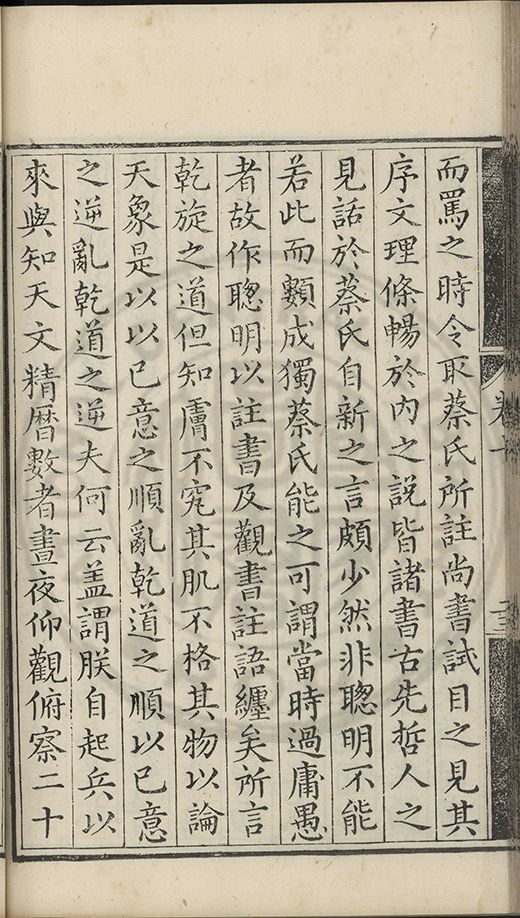 而罵之時令取蔡氏所註尚書試目之見其
序文理條暢於內之說皆諸書古先哲人之
見話於蔡氏自新之言頗少然非聰明不能
若此而類成獨蔡氏能之可謂當時過庸愚
者故作聰明以註書及觀書註語纏矣所言
乾旋之道但知膚不究其肌不格其物以論
天象是以以己意之順亂乾道之順以己意
之逆亂乾道之逆夫何云盖謂朕自起兵以
來與知天文精曆數者晝夜仰觀俯察二十